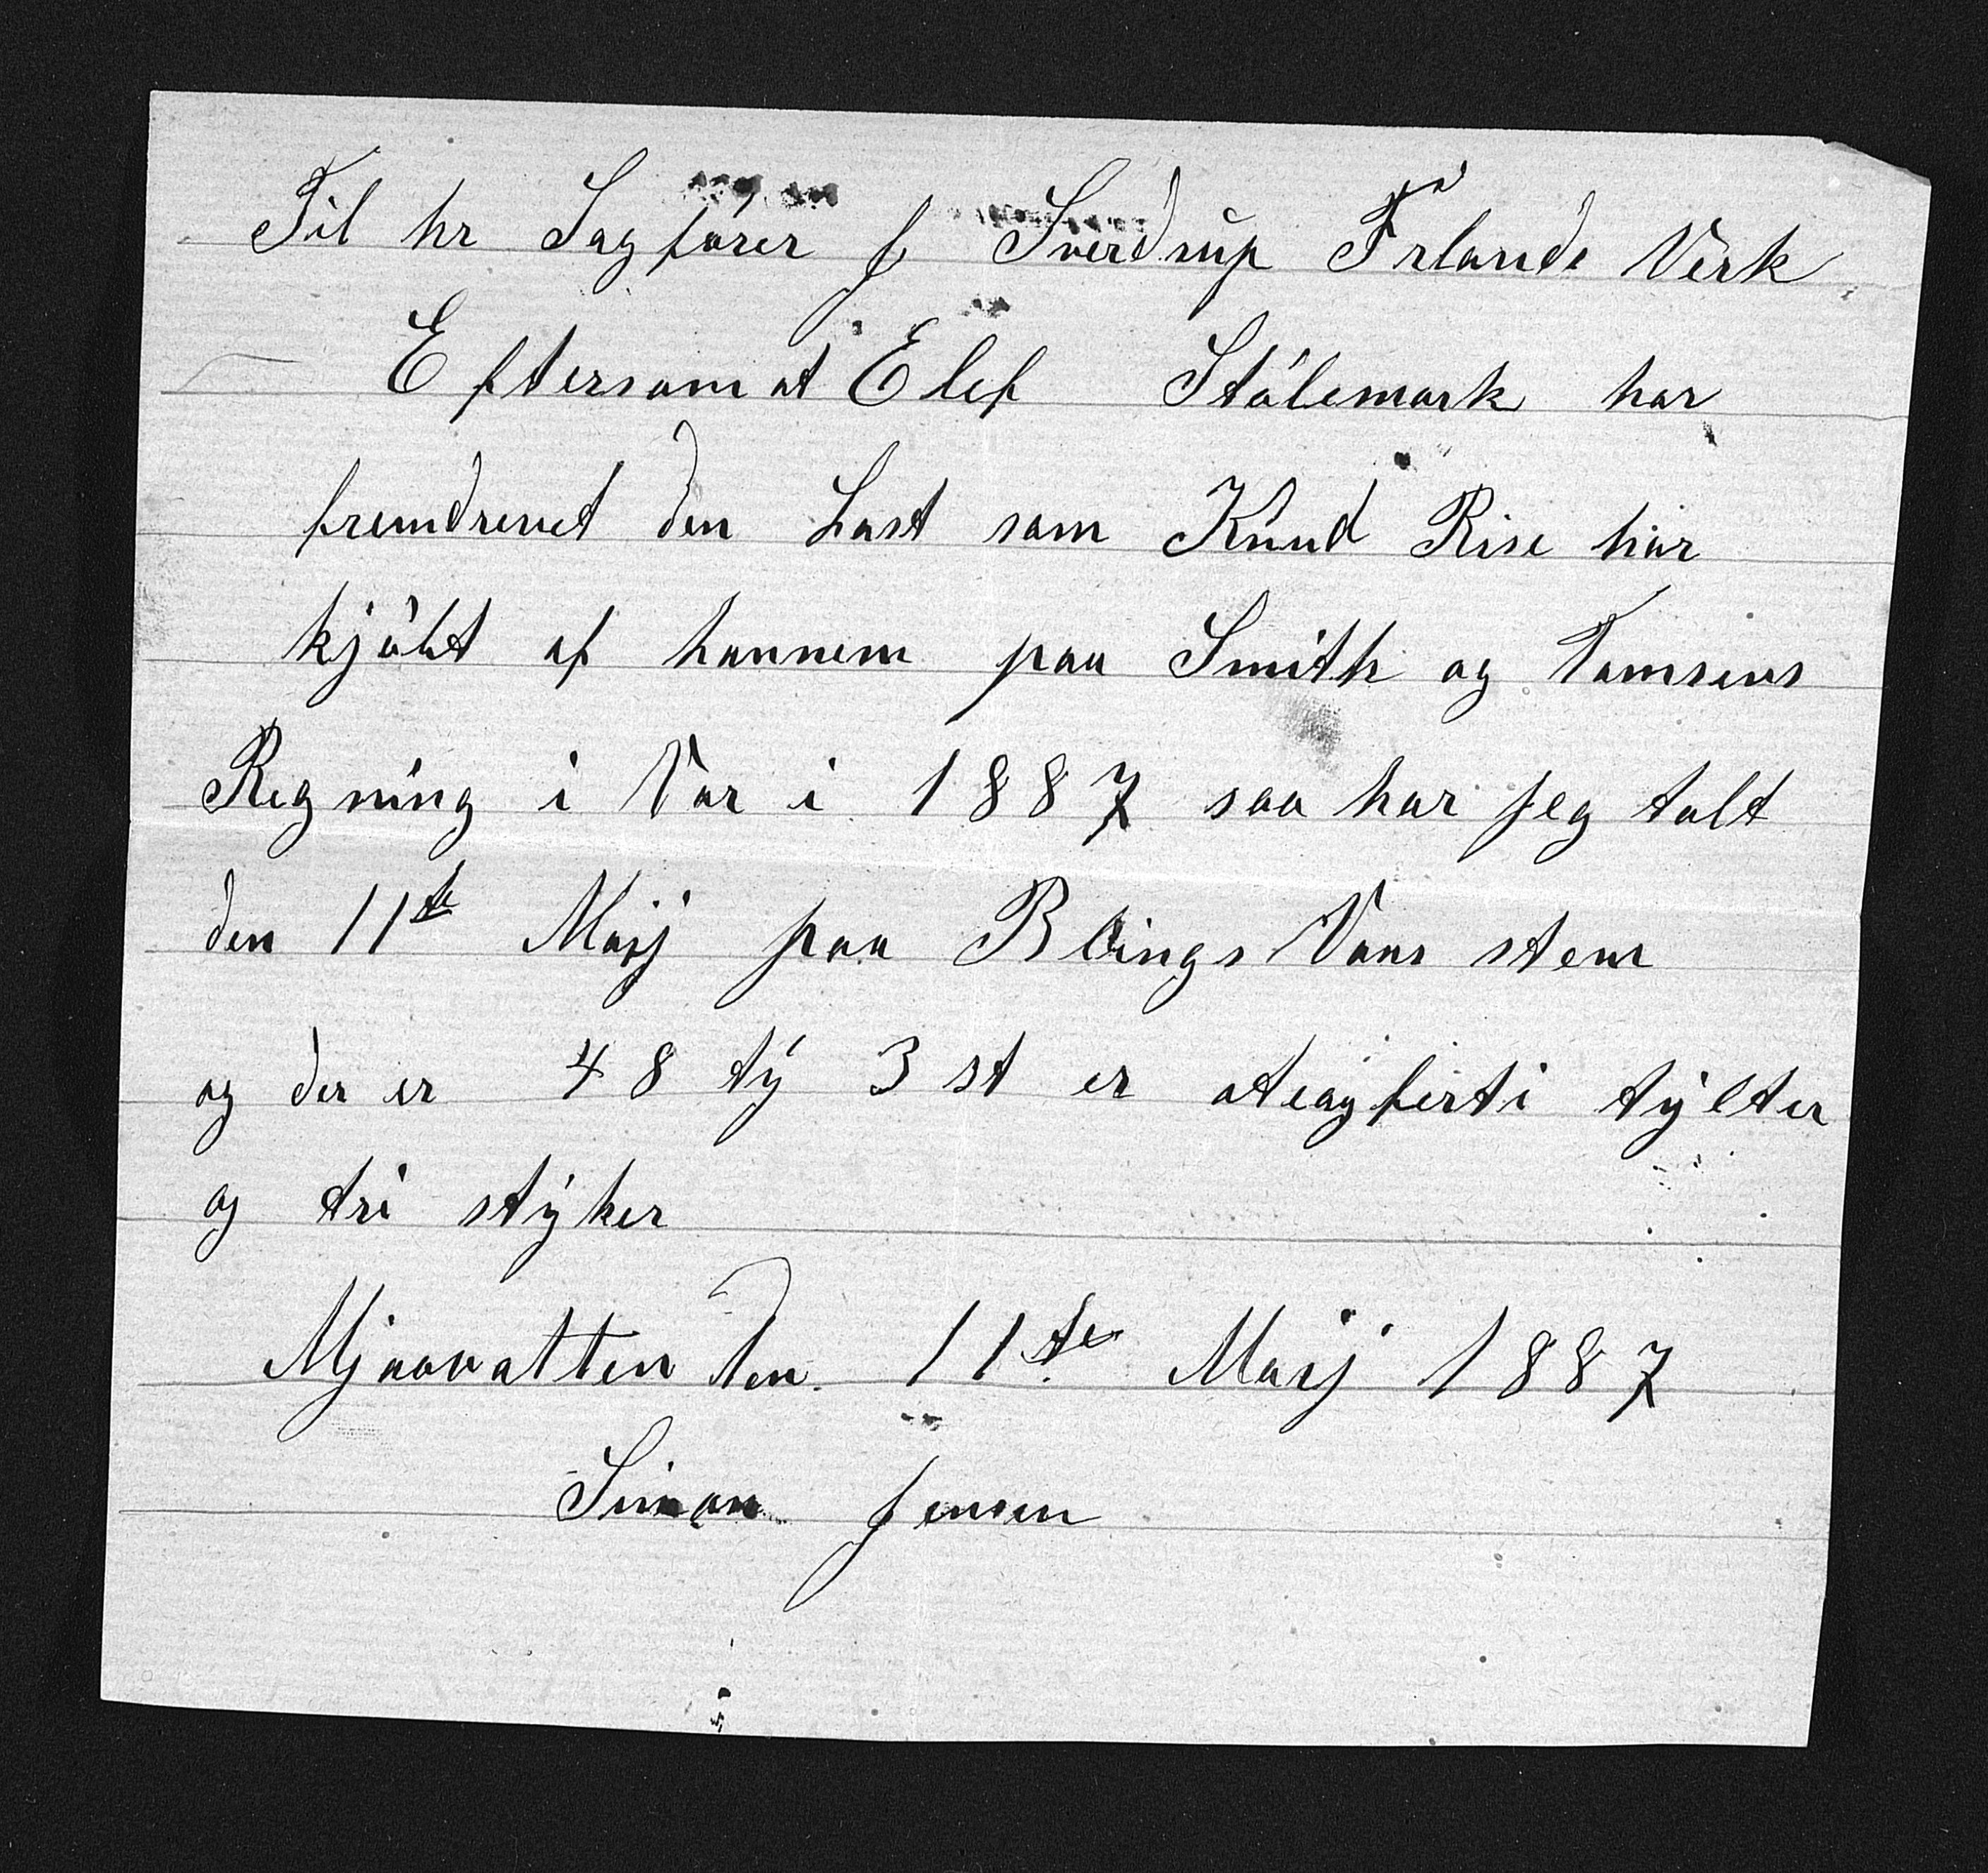 Til hr Sagförer J Sverdrup Frlands Verk
Eftersom at Elef Stölemark har
fremdrevet den Last som Knud Rise har
kjöbt af hannem paa Smith og Tomsens
Regning i Vor i 1887 saa har jeg talt
den 11te Maij paa Vans stem
og der er 48 ty 3 st er oteogferti tylter
og tri styker
Mjaavatten den. 11te Maij 1887
Simon Jensen